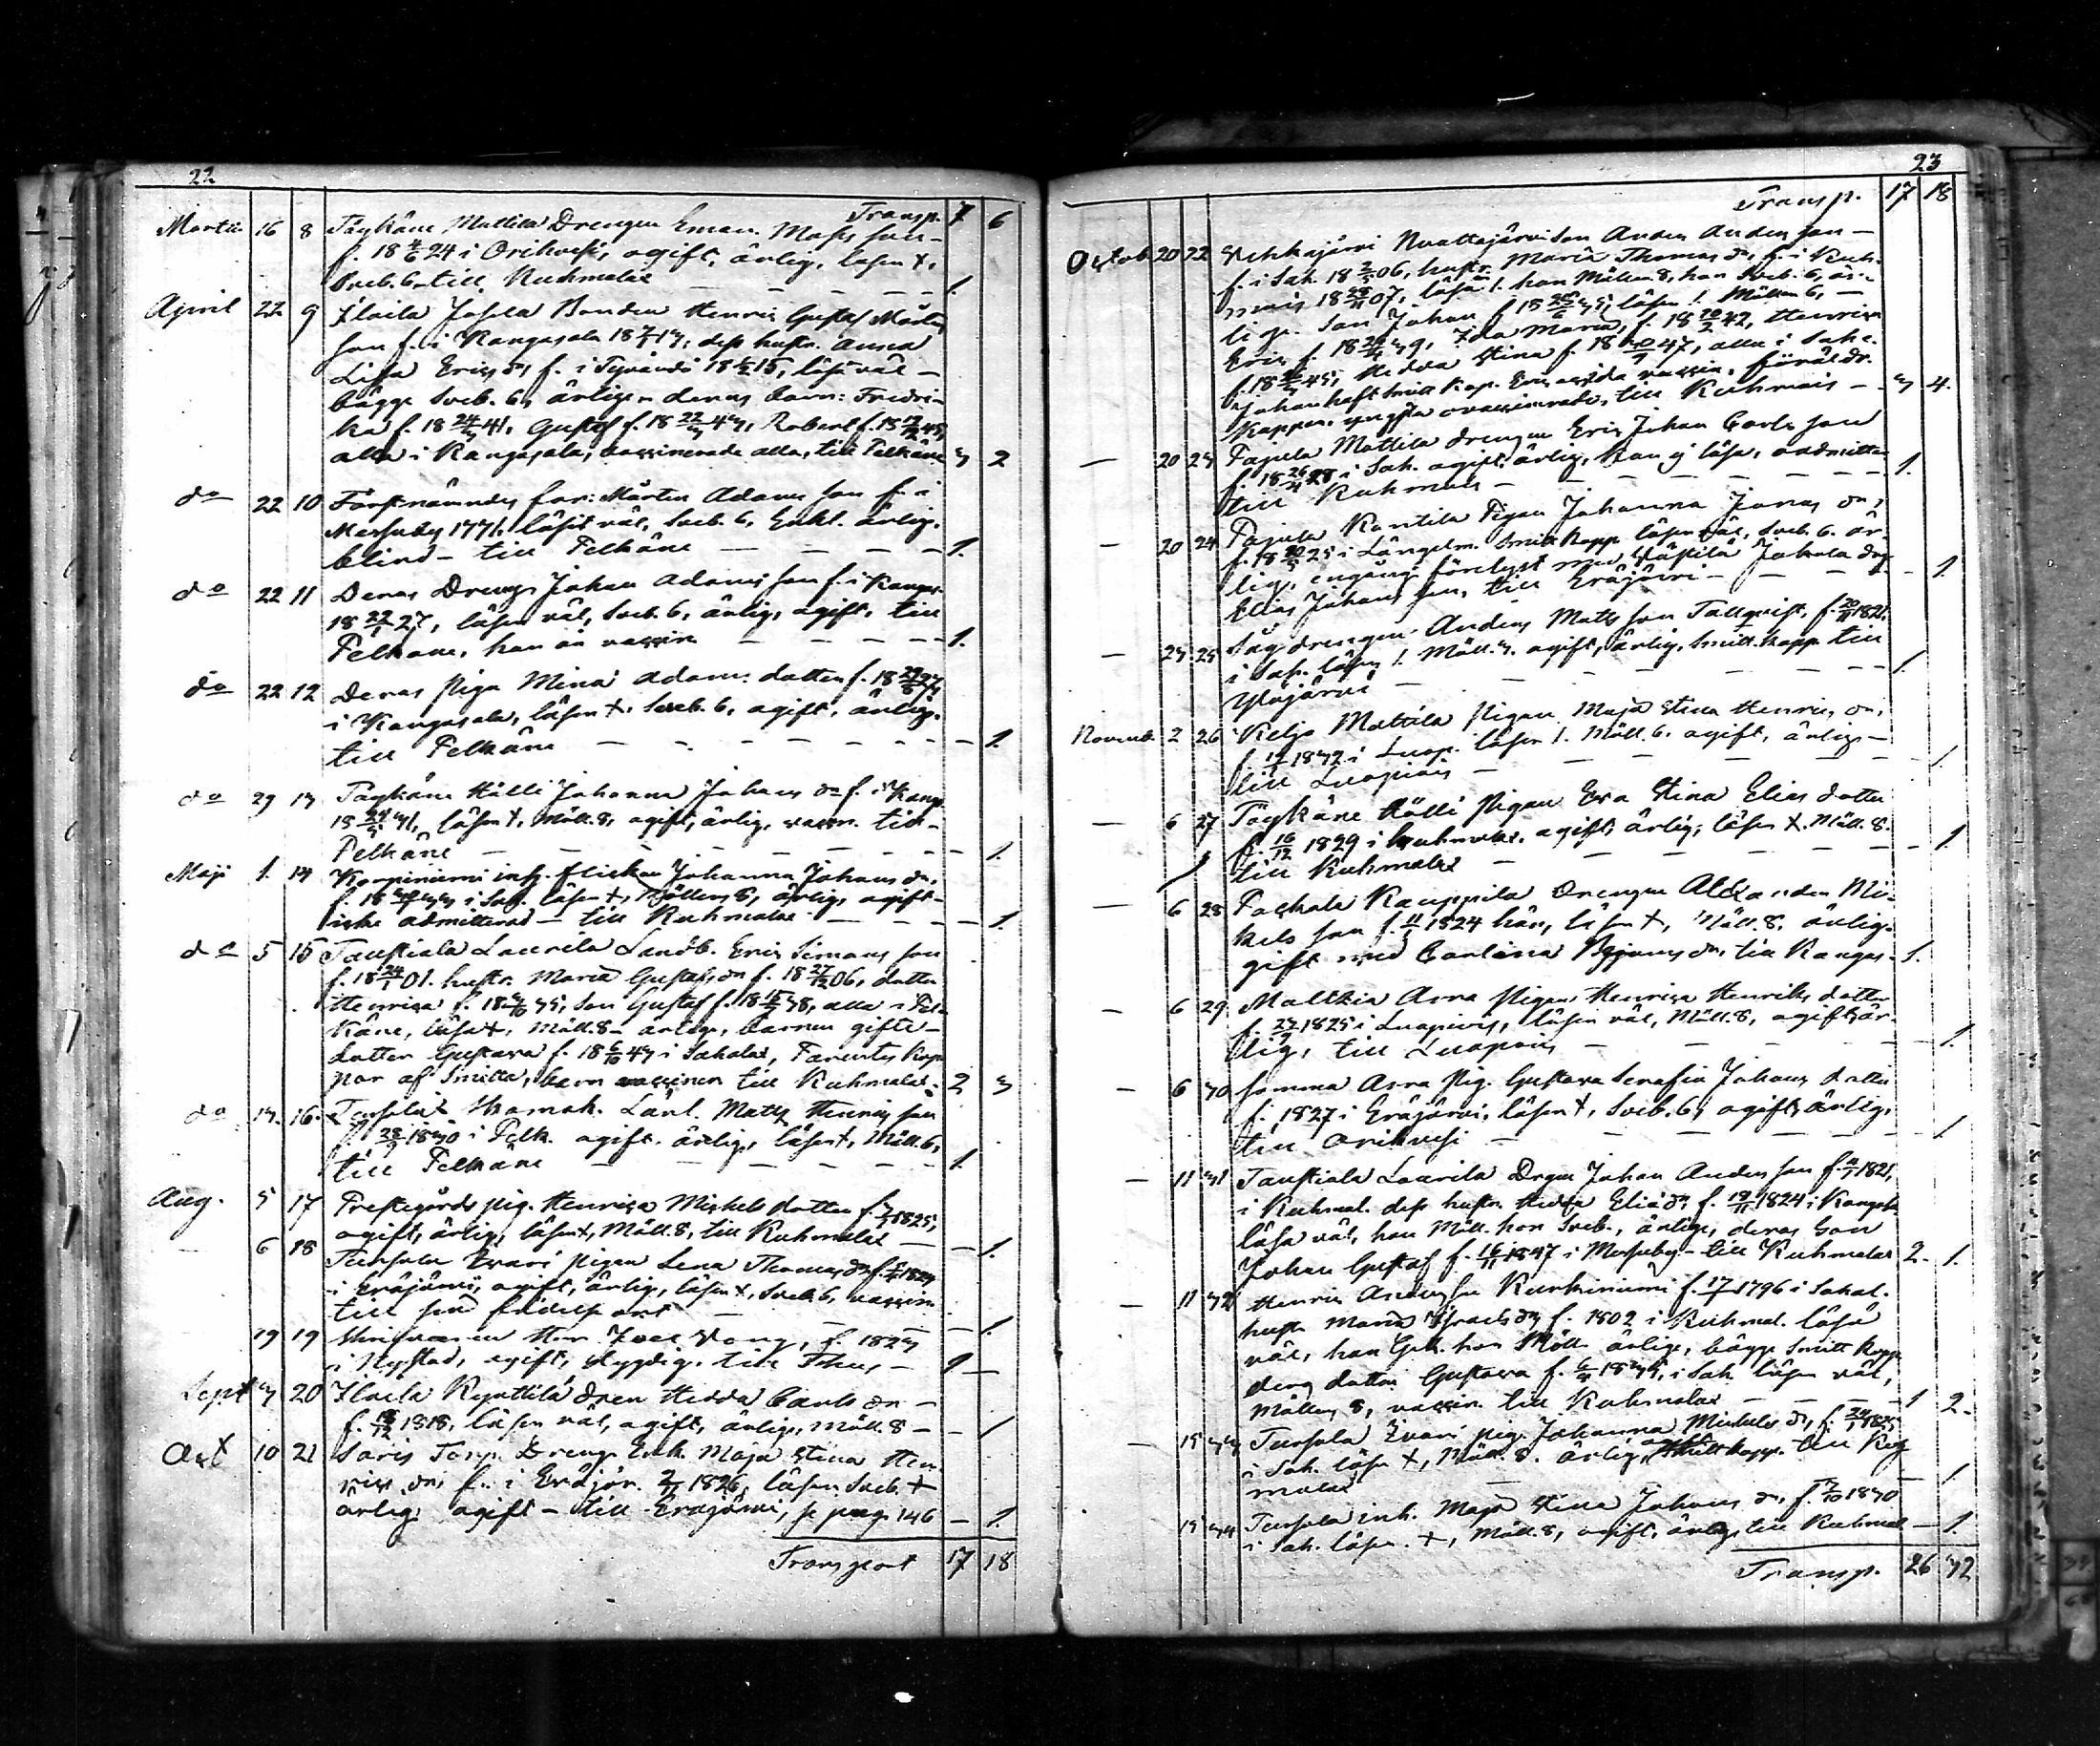 22
Transp. 7 6
Martii 16 8 Täykäne Mattila Drengen Eman. Mats son
f. 18 24 i Orihvesi, ogift, ärlig, läser +,
Sveb. 6 till Kuhmalax 1.
April 22 9 Ilaila Josela Bonden Henric Gustaf Mårtens
son f. i Kangasala 18 17, dess hustr. Anna
Lisa Erics dr, f. i Tyrvändö 18 15, läsa väl
bägge Sveb. 6, ärliga deras barn: Fredri-
ka f. 18 24 41, Gustaf f. 18 22 43, Robert f. 18 45,
alla i Kangasala, vaccinerade alla, till Pelkäne 3 2
do 22 10 Förstnämndes far: Mårten Adams son f. i
Messuby 1771, läsit väl, Sveb. 6, Enkl. ärlig.
blind till Pelkäne 1.
do 22 11 Deras Dreng Johan Adams son f. i Kangas.
18 22/1 27, läser väl, Sveb. 6, ärlig, ogift, till
Pelkäne, han är vaccin 1.
do 22 12 Deras piga Mina Adams dotter f. 18
i Kangasala, läser +, Sveb. 6, ogift, ärlig.
till Pelkäne 1.
do 29 13 Täykäne Hälli Johanna Johans dr f. i Kang.
18 31, läser +, Möll. 8, ogift, ärlig, vaccin. till
Pelkäne 1.
Maji 1. 14 Korpiniemi inh. flickan Johanna Johans dr,
f. 18 33 i Sah. läser +, Möllers 8, ärlig, ogift
icke admitterad till Kuhmalax 1.
do 5 15 Taustiala Laurila Landb. Eric Simons son
f. 18 24/1 01. hustr. Maria Gustafs dr f. 18 27/12 06, dotter
Henrica f. 18 35, Son Gustaf f. 18 38, alla i Pel-
käne, läsa +, Möll. 8 ärliga, barnen gifte
dotter Gustava f. 18 6/10 43 i Sahalax, Parentes Kop-
por af Smitta, barn vaccinen till Kuhmalax. 2 3
do 13. 16. Tursola Hramak. Lärl. Matts Henrics son
f. 28 1830 i Pelk. ogift. ärlig, läser +, Möll. 6,
till Pelkäne 1.
Aug. 5 17 Prestegårds pig. Henrica Michels dotter f. 1825,
ogift, ärlig, läser +, Möll. 8, till Kuhmalax 1.
6 18 Tursola Iivari pigan Lena Thomas dr f. 1829
i Eräjärvi, ogift, ärlig, läser +, Sveb. 6, vaccin.
till sin födelse ort 1.
19 19 Herr Wang, f. 1823
i Nystad, ogift, dygdig. till 1
Sept 3 20 Ilaila Kynttilä Hedda Carls dr
f. 18/12 1818, läser väl, ogift, ärlig, Möll. 8 1
Oct 10 21 Saris Torp. Drengs Enk. Maja Stina Hen-
rics dr, f. i Eräjär. 1826, läser Sveb. +
ärlig, ogift till Eräjärvi, se pag. 146 1.
Transport 17 18
23
Transp. 17 18
Octob 20 22 Vehkajärvi Nuottajärvi Son Anders Anders son
f. i Sah. 18 06, hustr. Maria Thomas dr, f. i Kuh-
mois 18 07, läsa 1. han Möllers 8, hon Sveb. 6, är-
liga. Son Johan f. 18 35, läser 1. Möllers 6,
Eric f. 18 39, Ida Maria, f. 18 42, Henrica
f. 18 45, Hedda Stina f. 18 47, alla i Sahal.
Johan haft Smitt kop. vaccin. föräldr.
Koppor. yngsta ovaccinerade, till Kuhmois 3 4.
20 23 Pajula Mattila drengen Eric Johan Carls son
f. 18 26 28 i Sah. ogift, ärlig, kan ej läsa, oadmitter
till Kuhmois 1.
20 24 Pajula Kantila Pigan Johanna Jonas dr,
f. 18 25 i Längelm. Smitt kopp. läser väl, Sveb. 6. är-
lig, engång förelyst med Västilä Jakola drg
Elias Johans son, till Eräjärvi 1.
23 25 Såg drengen Anders Matts son Tallqvist, f. 1821.
i Sah. läser 1. Möll. 3. ogift, ärlig, Smitt. kopp. till
Ylöjärvi 1
Novemb. 2 26 Keljo Mattila Pigan Maja Stina Henrics dr,
f. 1832 i Luop. läser 1. Möll. 6. ogift, ärlig
till Luopiois 1
6 27 Täykäne Hälli Pigan Eva Stina Elias dotter
f. 16/12 1829 i Kuhmalax, ogift, ärlig, läser +. Möll. 8.
till Kuhmalax 1
6 28 Pakkala Kauppila Drengen Alexander Mi-
kels son f. 1824 här, läser +, Möll. 8, ärlig.
gift med Carolina Benjams dr, till Kangas. 1.
6 29 Mattila Arra Pigan Henrica Henriks dotter
f. 1825 i Luopiois, läser väl, Möll. 8, ogift, är-
lig, till Luopiois 1.
6 30 Somma Arra Pig. Gustava Serafia Johans dotter
f. 1827 i Eräjärvi, läser +, Sveb. 6, ogift, ärlig,
till Orihvesi 1
11 31 Taustiala Laurila Drgn Johan Anders son f. 1821,
i Kuhmal. dess hustr. Hedda Elias dr f. 18/11 1824 i Kangasl.
läsa väl, han Möll. hon Sveb., ärliga, deras Son
Johan Gustaf f. 16/11 1847 i Messuby till Kuhmalax 2. 1.
11 32 Henric Anders son Kurkiniemi f. 17 1796 i Sahal.
hustr Maria Israels dr f. 1802 i Kuhmal. läsa
väl, han Gek. hon Möll. ärliga, bägge Smitt kopp.
deras dotter Gustava f. 1835, i Sah. läser väl,
Möllers 8, vaccin. till Kuhmalax 1 2.
15 33 Tursola Iivari pig. Johanna Michels dr, f. 24 1825
i Sah. läser +, Möll. 8. ärlig, ogift Smitt kopp. till Kuh
malax 1
15 34 Tursola inh. Maja Stina Johans dr, f. 1830
i Sah. läser. +, Möll. 8, ogift, ärlig, till Kuhmal 1.
Transp. 26 32